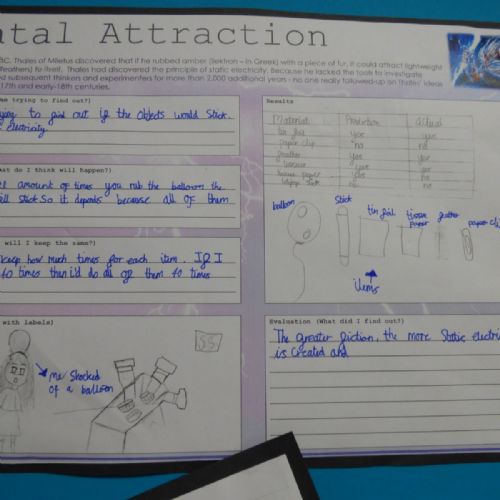 atal Attraction
BC, Thales of Miletus discovered that if he rubbed amber (lektron – in Greek) with a piece of fur, it could attract lightweight
feathers) to itself. Thales had discovered the principle of static electricity. Because he lacked the tools to investigate
subsequent thinkers and experimenters for more than 2,000 additional years - no one really followed-up on Thales' ideas
17th and early-18th centuries.
trying to find out?)
to find out if the Objects would Stick
electricity
do I think will happen?)
amount of times you rub the balloon the
Stick So it depends because all of them
will I keep the same?)
keep how much times for each item. If I
40 times then i'd do all of them 40 times
with labels)
me Shocked
of a balloon
Results
Material Prediction actual
tin foil yes yes
paper clip no no
feather yes yes
yes yes
yes no
no no
balloon
Stick
tin foil
tissue paper
paper clip
items
Evaluation (What did I find out?)
The greater friction, the more Static electri
is Created and